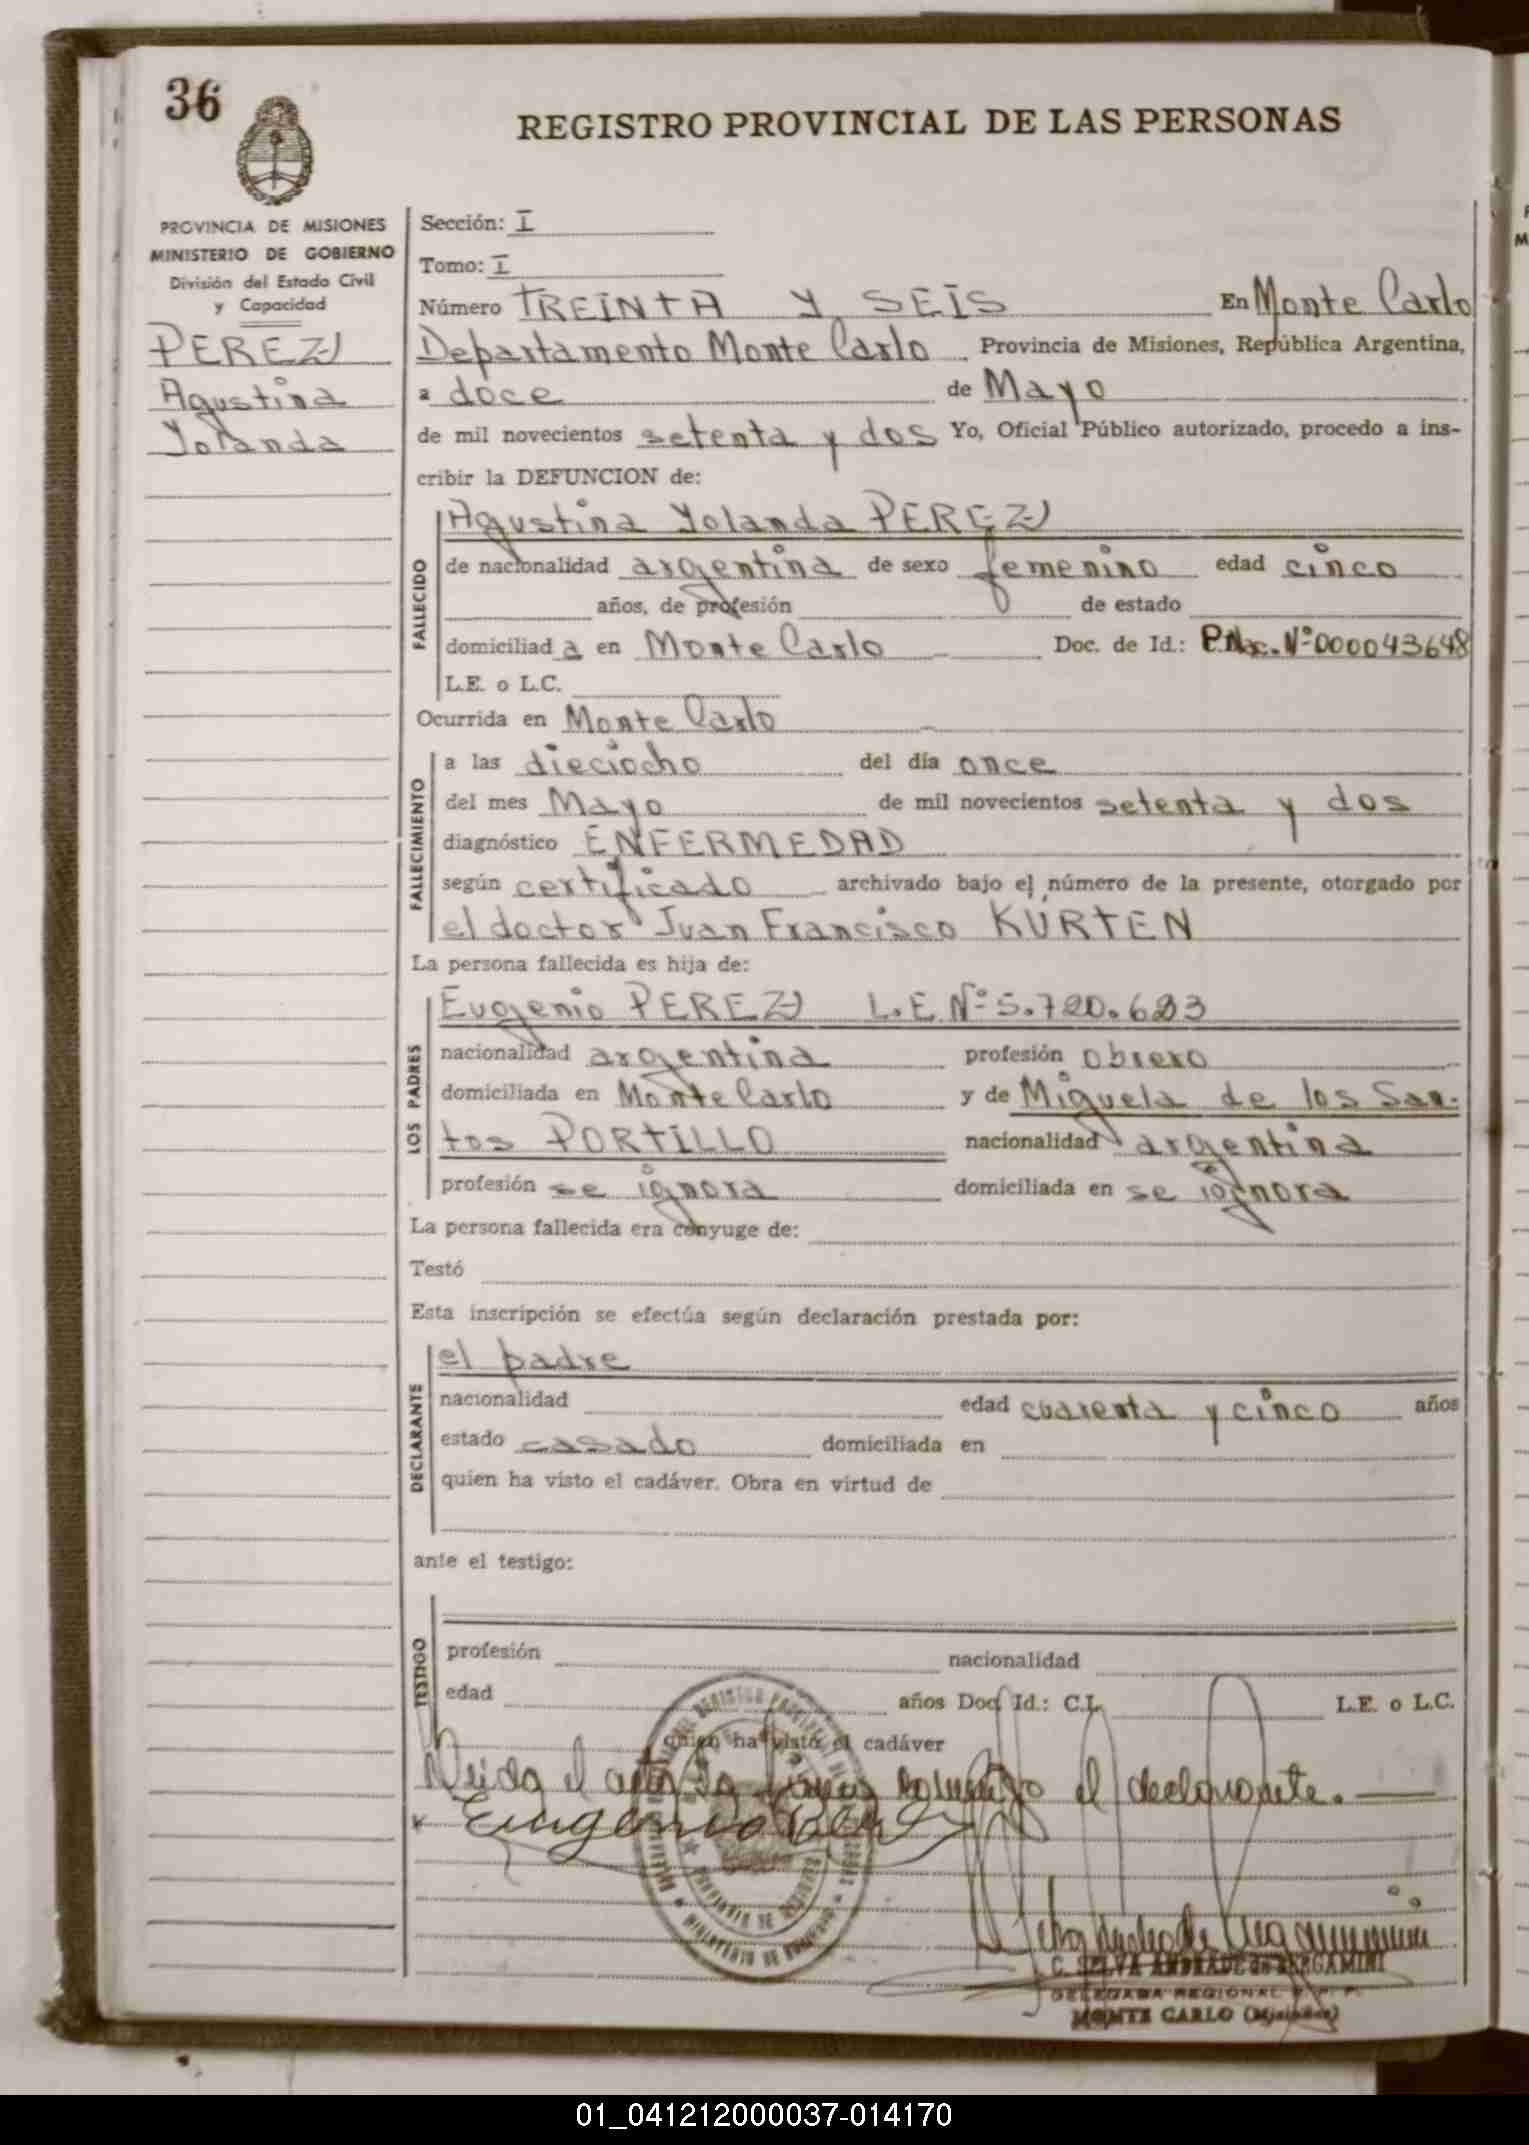 36
REGISTRO PROVINCIAL DE LAS PERSONAS
PROVINCIA DE MISIONES
MINISTERIO DE GOBIERNO
División del Estado Civil
y Capacidad
PEREZ
Agustina
Yolanda
Sección: I
Tomo: I
Número TREINTA Y SEIS En Monte Carlo
Departamento Monte Carlo Provincia de Misiones, República Argentina,
a doce de Mayo
de mil novecientos setenta y dos Yo, Oficial Público autorizado, procedo a ins-
cribir la DEFUNCION de:
FALLECIDO
Agustina Yolanda PEREZ
de nacionalidad argentina de sexo femenino edad cinco
años, de profesión de estado
domiciliad a en Monte Carlo Doc. de Id.: P.Nac. Nº 000043648
L.E. o L.C.
Ocurrida en Monte Carlo
FALLECIMIENTO
a las dieciocho del día once
del mes Mayo de mil novecientos setenta y dos
diagnóstico ENFERMEDAD
según certificado archivado bajo el número de la presente, otorgado por
el doctor Juan Francisco KÜRTEN
La persona fallecida es hija de:
LOS PADRES
Eugenio PEREZ L.E. Nº 5.720.683
nacionalidad argentina profesión obrero
domiciliada en Monte Carlo y de Miguela de los San-
tos PORTILLO nacionalidad argentina
profesión se ignora domiciliada en se ignora
La persona fallecida era conyuge de:
Testó
Esta inscripción se efectúa según declaración prestada por:
DECLARANTE
el padre
nacionalidad edad cuarenta y cinco años
estado casado domiciliada en
quien ha visto el cadáver. Obra en virtud de
ante el testigo:
TESTIGO
profesión nacionalidad
edad años Doc. Id.: C.I. L.E. o L.C.
quien ha visto el cadáver
Leida el acta la firma conmigo el declarante.
x Eugenio Perez
PROVINCIA DE MISIONES
MINISTERIO DE GOBIERNO
C. SELVA ANDRADE de BERGAMINI
DELEGADA REGIONAL R. P. P.
MONTE CARLO (Misiones)
01_041212000037-014170